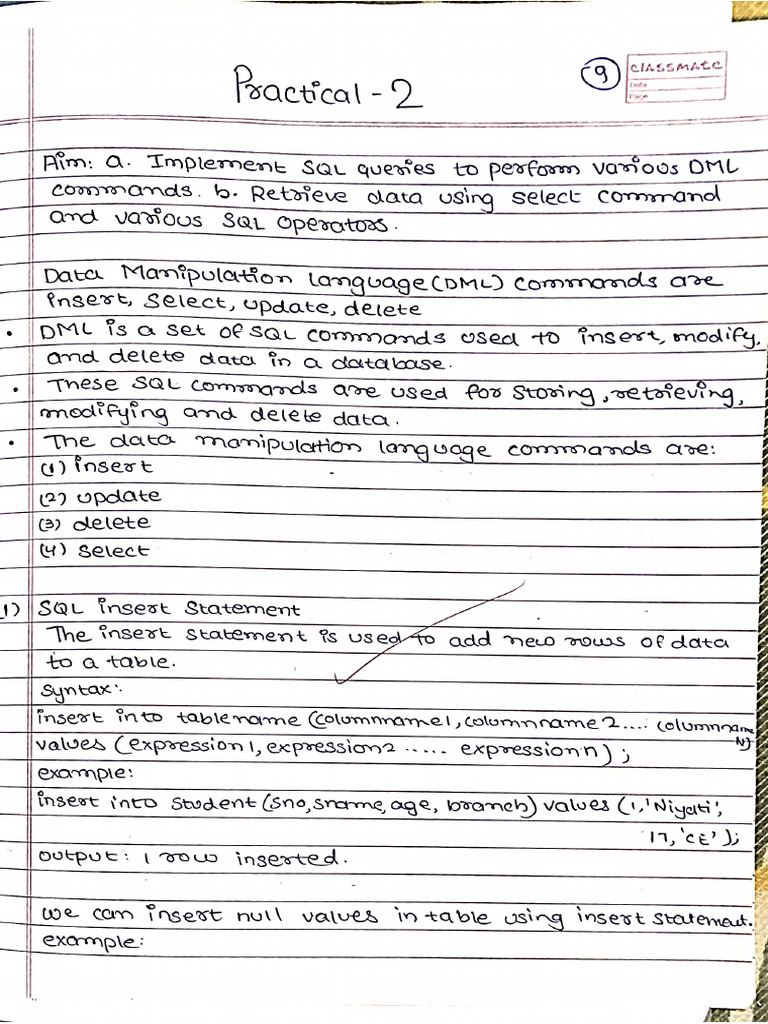 Practical - 2
9
CLASSMATE
Date
Page
Aim: a. Implement SQL queries to perform various DML
commands. b. Retrieve data using select command
and various SQL operators.
Data Manipulation Language(DML) commands are
insert, select, update, delete
• DML is a set of SQL commands used to insert, modify,
and delete data in a database.
• These SQL commands are used for storing, retrieving,
modifying and delete data.
• The data manipulation language commands are:
(1) insert
(2) update
(3) delete
(4) select
1) SQL insert statement
The insert statement is used to add new rows of data
to a table.
syntax:
insert into tablename (columnname1, columnname2.... columnname
N)
values (expression1, expression2 ..... expressionn) ;
example:
insert into student (sno, sname, age, branch) values (1, 'Niyati',
17, 'CE');
output: 1 row inserted.
we can insert null values in table using insert statement.
example: